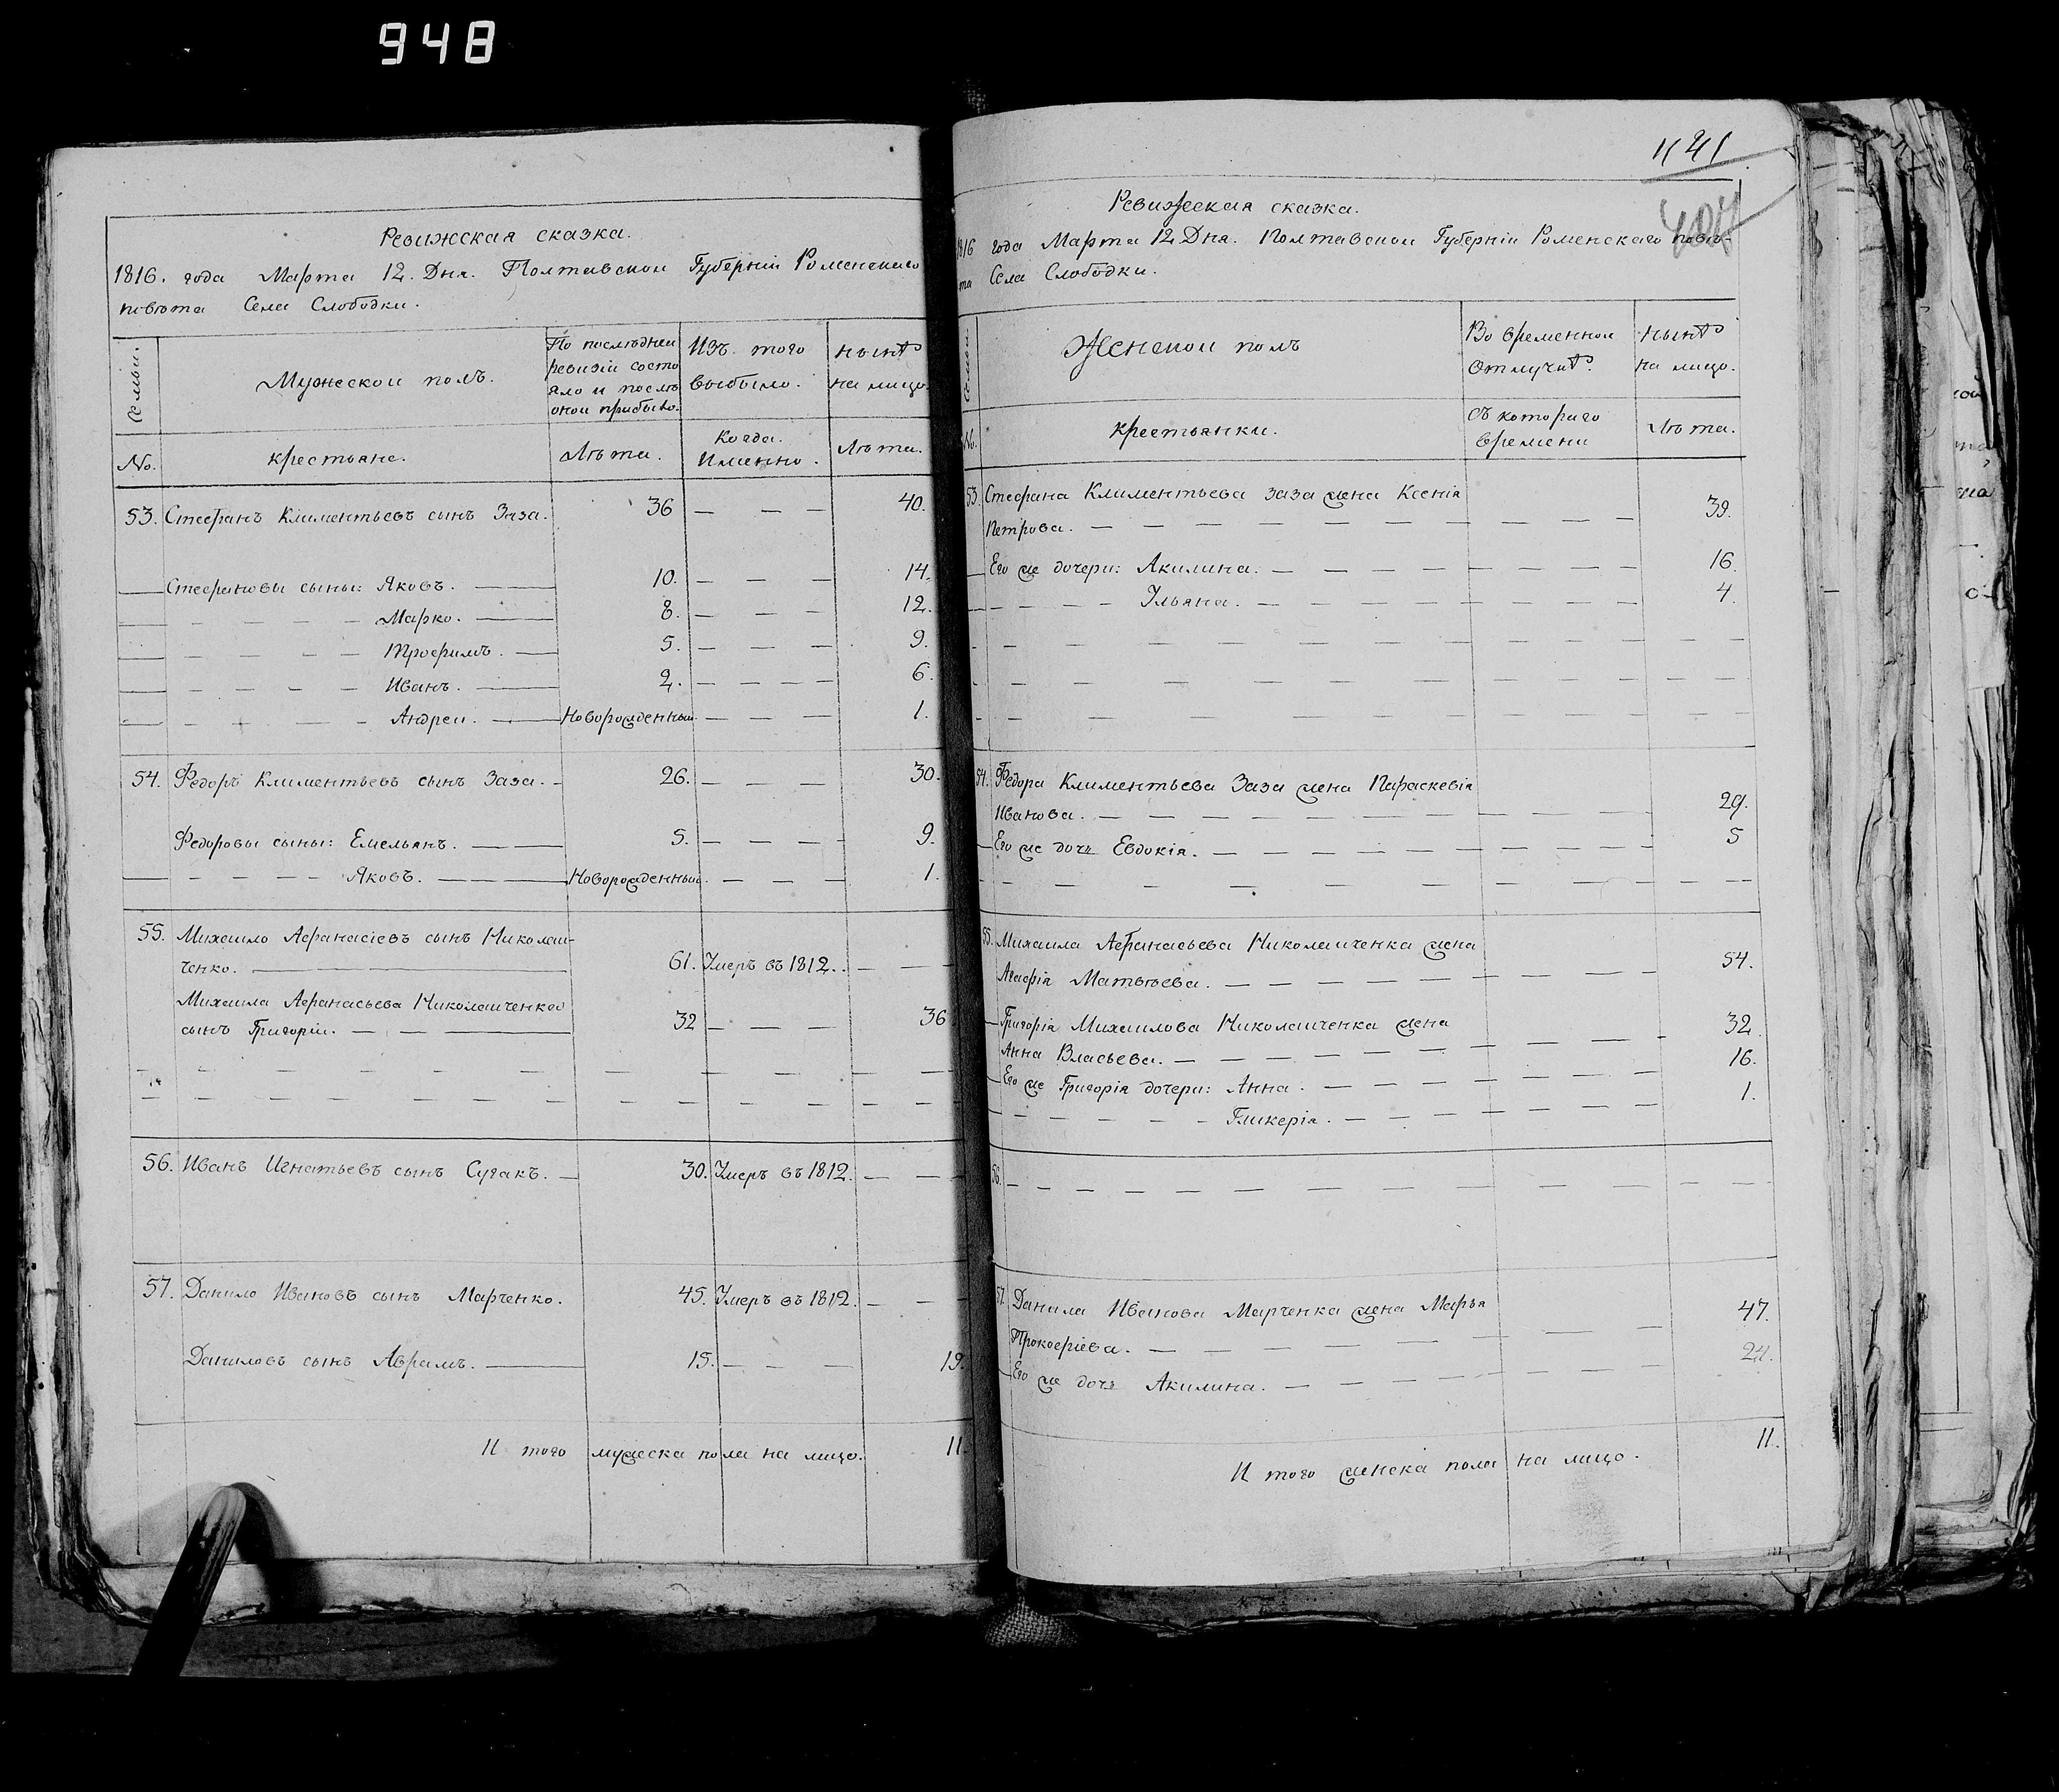 948
Ревижская сказка.
1816. года Марта 12. Дня. Полтавскои Губерніи Роменскаго
повѣта Села Слободки.
Семьи.
Мужескои полъ.
По послѣднеи
ревизіи состо
яло и послѣ
онои прибыло.
Изъ того
выбыло.
нынѣ
на лицо.
No.
крестьяне.
Лѣта.
Когда.
Именно.
Лѣта.
53. Стефанъ Климентьевъ сынъ Заза. 36 — — — 40.
Стефановы сыны: Яковъ. — 10. — — — 14.
— — — — Марко. — 8. — — — 12.
— — — — Трофимъ. — 5. — — — 9.
— — — — Иванъ. — 2. — — — — 6.
— — — — Андреи. — Новорожденныи — — — 1.
54. Федоръ Климентьевъ сынъ Заза. - 26. — — — 30.
Федоровы сыны: Емельянъ. — — 5. — — — — 9.
— — — — — Яковъ. — — Новорожденныи. — — — 1.
55. Михаило Афанасіевъ сынъ Николаи-
ченко. — 61. Умеръ въ 1812. . — — —
Михаила Афанасьева Николаиченка
сынъ Григоріи. — — — 32 — — — 36.
56. Иванъ Игнатьевъ сынъ Сугакъ. — 30. Умеръ въ 1812. — — —
57. Данило Ивановъ сынъ Марченко. 45. Умеръ въ 1812. — — —
Даниловъ сынъ Аврамъ. — 15. — — — 19.
И того мужеска пола на лицо. 11.
441
407
Ревижеская сказка.
1816 года Марта 12 Дня. Полтавскои Губерніи Роменскаго повѣ-
та Села Слободки.
Семьи.
Женскои полъ
Во временнои
отлучкѣ.
нынѣ
на лицо.
No.
крестьянки.
Съ котораго
времени
Лѣта.
53. Стефана Климентьева Заза жена Ксенія
Петрова. — — — — — — — — — 39.
Его же дочери: Акилина. — — — — — — — 16.
— — — — Ульяна. — — — — — — — 4.
54. Федора Климентьева Заза жена Параскевія
Иванова. — — — — — — — — — 29.
Его же дочь Евдокія. — — — — — — — 5
55. Михаила Афанасьева Николаиченка жена
Агафія Матвѣева. — — — — — — — 54.
Григорія Михаилова Николаиченка жена
Анна Власьева. — — — — — — — 32.
Его же Григорія дочери: Анна. — — — — — 16.
— — — — — Гликерія. — — — — — 1.
56. — — — — — — — — — — — —
57. Данила Иванова Марченка жена Марья
Прокофіева. — — — — — — 47.
Его же дочь Акилина. — — — — — 24.
И того женска пола на лицо. 11.